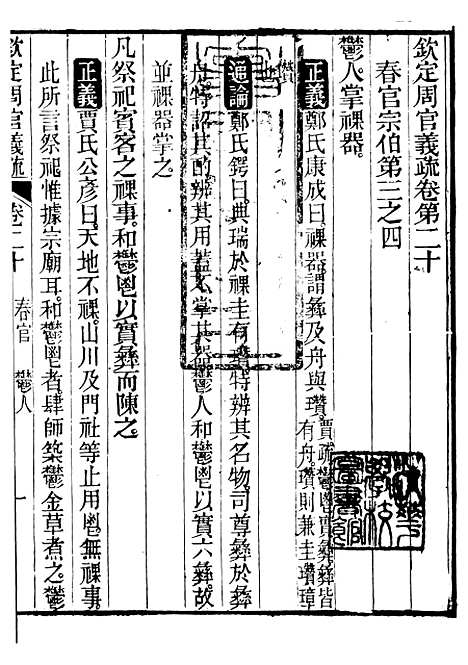 欽定周官義疏卷第二十
春官宗伯第三之四
鬱人掌祼器
正義鄭氏康成曰祼器謂彝及舟與瓚賈疏賈彝彝皆有舟瓚則兼圭瓚璋
瓚
通論鄭氏鍔曰典瑞於祼圭有瓚特辨其名物司尊彝於彝
舟特詔其酌辨其用蓋掌其器鬱人和鬱鬯以實六彝故
並祼器掌之
凡祭祀賓客之祼事和鬱鬯以實彝而陳之
正義賈氏公彥曰天地不祼山川及門社等止用鬯無祼事
此所言祭祀惟據宗廟耳和鬱鬯者肆師築鬱金草煮之鬱
欽定周官義疏 卷二十 春官 鬱人 一